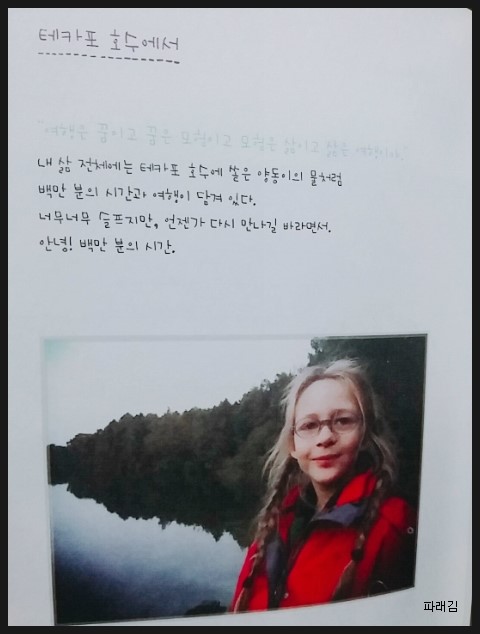 테카포 호수에서
"여행은 꿈이고 꿈은 모험이고 모험은 삶이고 삶은 여행이다."
내 삶 전체에는 테카포 호수에 쏟은 양동이의 물처럼
백만 분의 시간과 여행이 담겨 있다.
너무너무 슬프지만, 언젠가 다시 만나길 바라면서.
안녕! 백만 분의 시간.
파래김